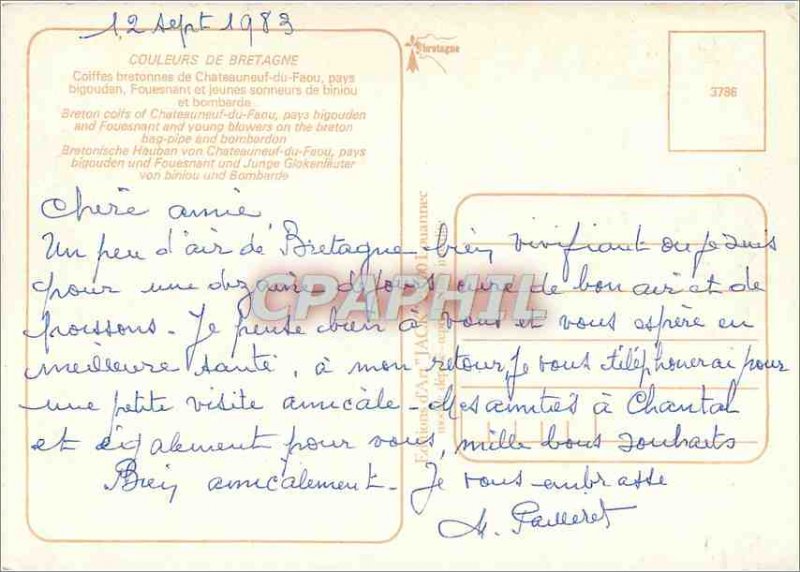 12 Sept 1983
COULEURS DE BRETAGNE
Coiffes bretonnes de Chateauneuf-du-Faou, pays
bigouden, Fouesnant et jeunes sonneurs de biniou
et bombarde
Breton coifs of Chateauneuf-du-Faou, pays bigouden
and Fouesnant and young blowers on the breton
bag-pipe and bombardon
Bretonische Hauben von Chateauneuf-du-Faou, pays
bigouden und Fouesnant und Junge Glokenläuter
von biniou und Bombarde
bretagne
3786
Chère amie
Un peu d'air de Bretagne bien vivifiant ou je suis
pour une dizaine de jours cure de bon air et de
poissons. Je pense bien à vous et vous espère en
meilleure santé, à mon retour, je vous téléphonerai pour
une petite visite amicale. Mes amitiés à Chantal
et également pour vous, mille bons souhaits
Bien amicalement. Je vous embrasse
M. Pailleret
Editions d'Art "JACK" Louannec
CPAPHIL